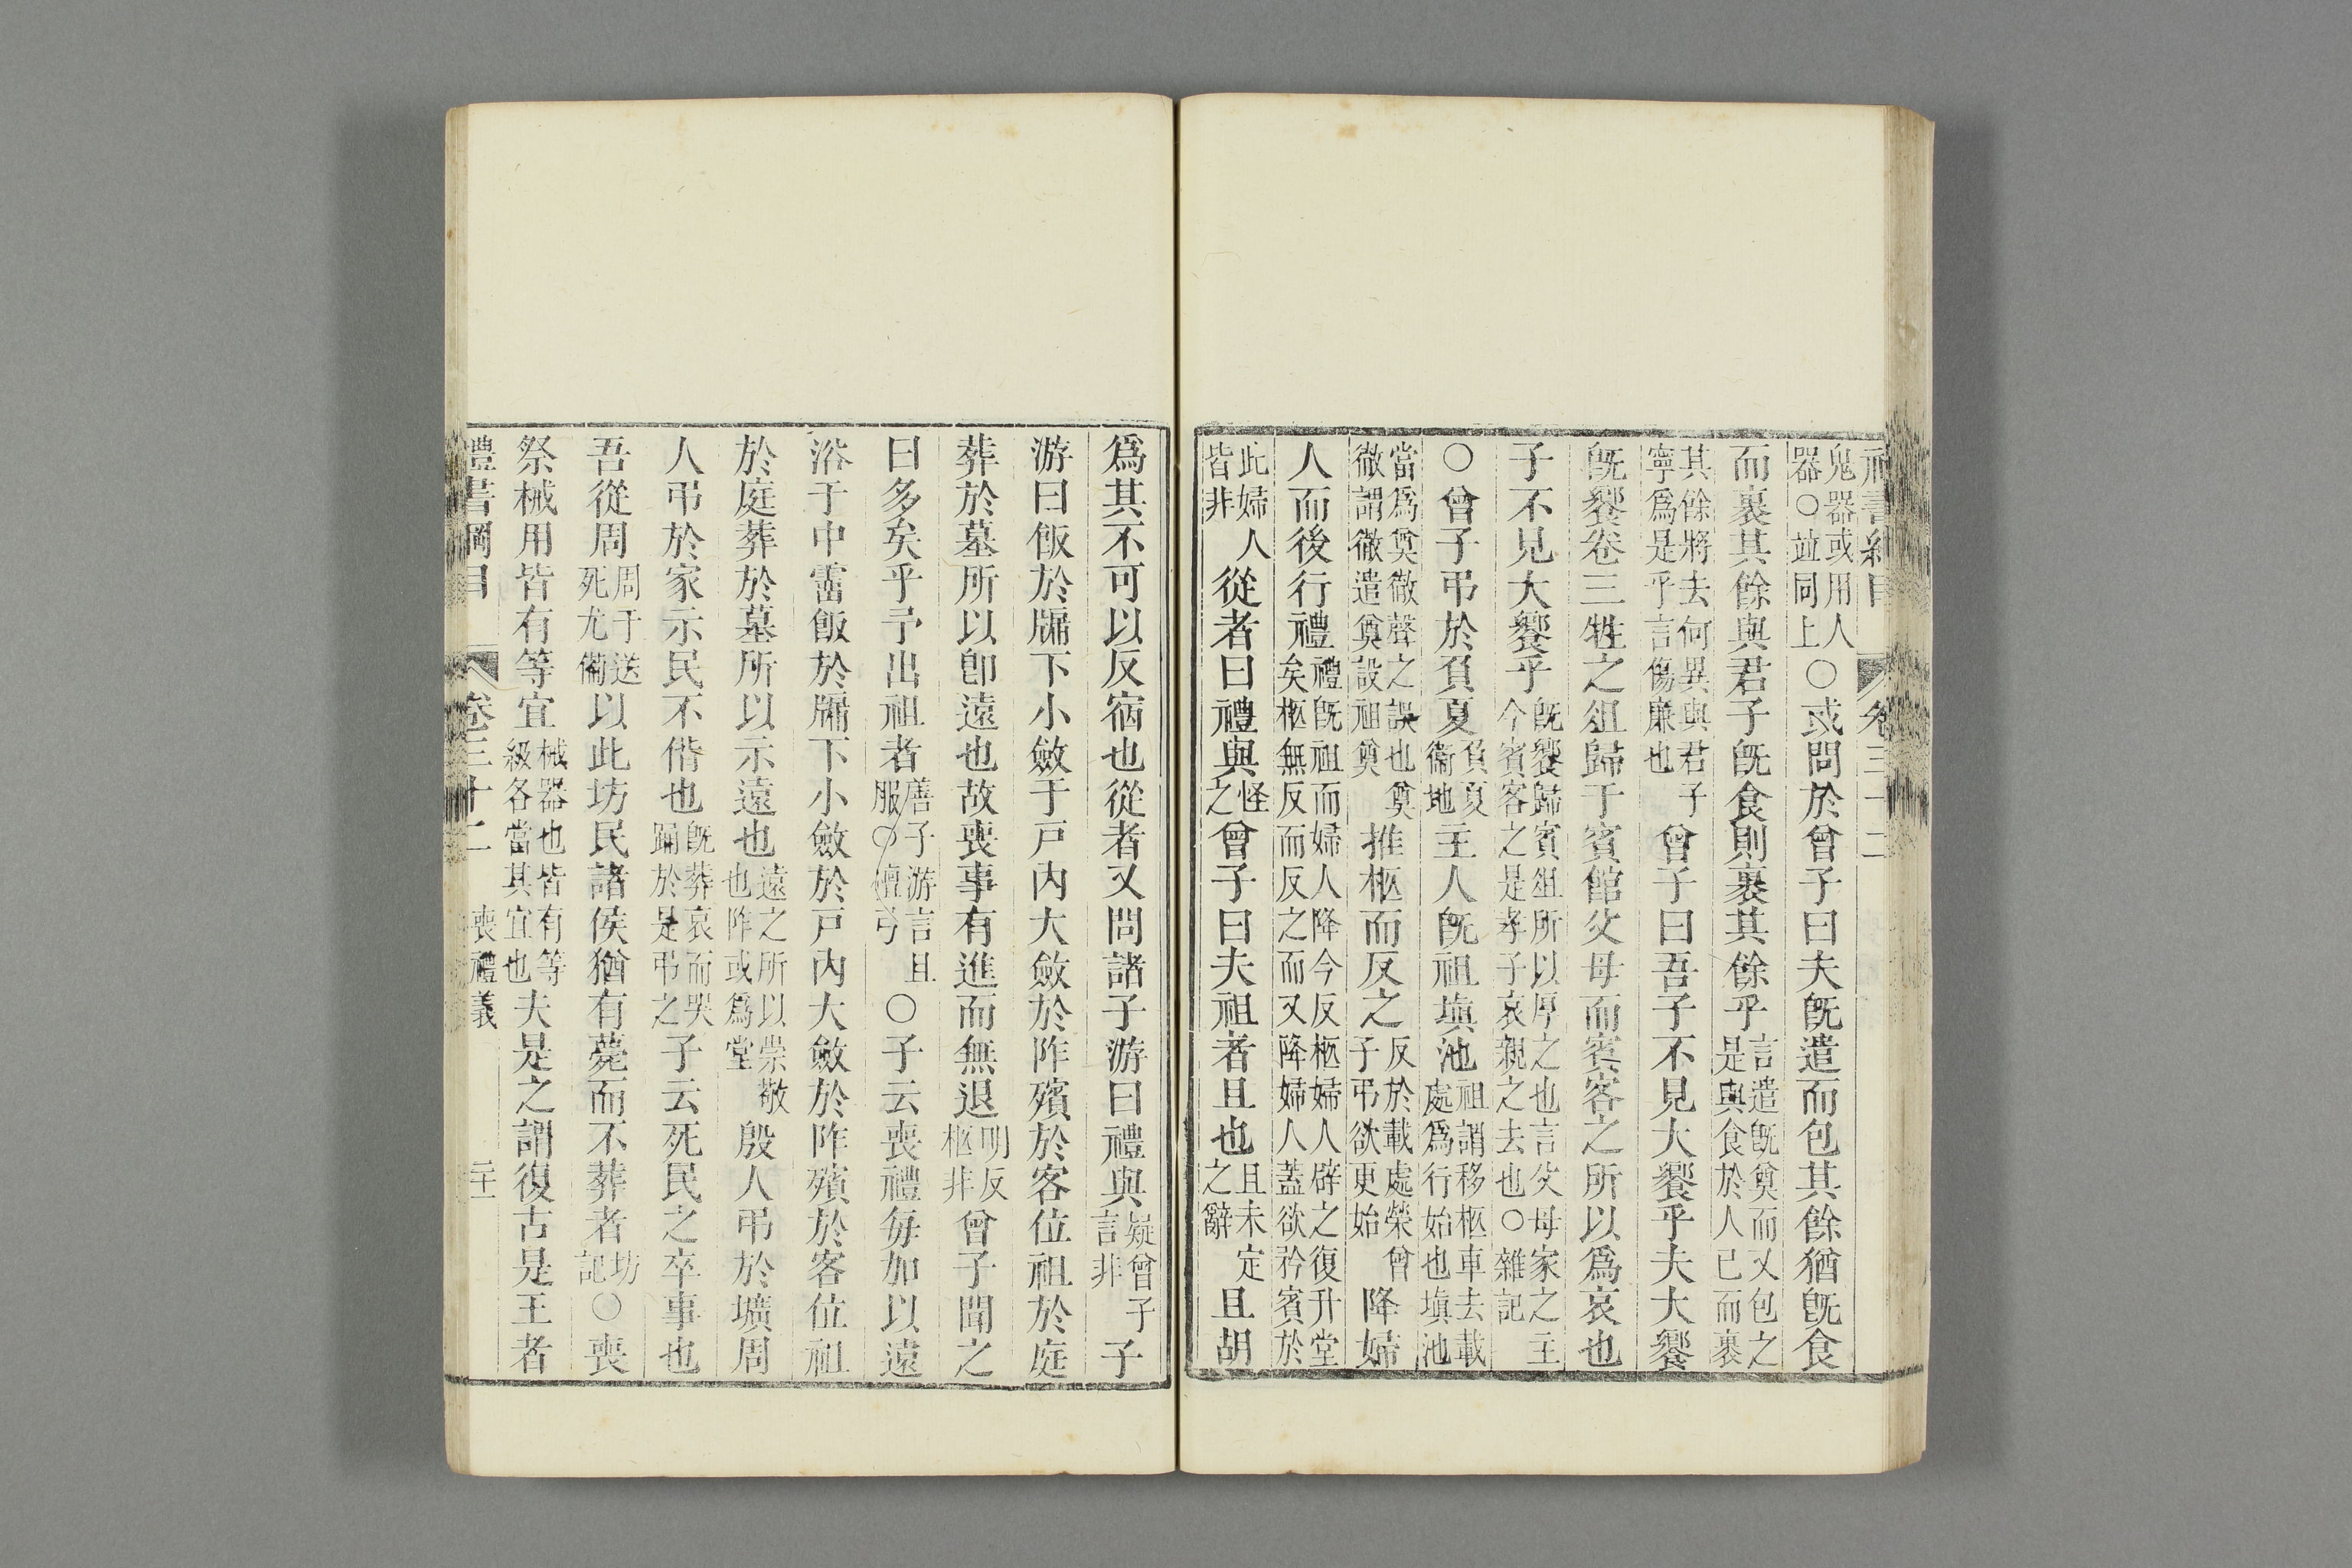 禮書綱目 卷三十二
鬼器或用人器○並同上○或問於曾子曰夫旣遣而包其餘猶旣食
而裹其餘與君子旣食則裹其餘乎言遣旣奠而又包之是與食於人已而裹
其餘將去何異與君子寧爲是乎言傷廉也曾子曰吾子不見大饗乎夫大饗
旣饗卷三牲之俎歸于賓館父母而賓客之所以爲哀也
子不見大饗乎旣饗歸賓俎所以厚之也言父母家之主今賓客之是孝子哀親之去也○雜記
○曾子弔於負夏負夏衞地主人旣祖塡池祖謂移柩車去載處爲行始也塡池
當爲奠徹聲之誤也奠徹謂徹遣奠設祖奠推柩而反之反於載處榮曾子弔欲更始降婦
人而後行禮禮旣祖而婦人降今反柩婦人辟之復升堂矣柩無反而反之而又降婦人蓋欲矜賓於
此婦人皆非從者曰禮與怪之曾子曰夫祖者且也且未定之辭且胡
爲其不可以反宿也從者又問諸子游曰禮與疑曾子言非子
游曰飯於牖下小斂于戸内大斂於阼殯於客位祖於庭
葬於墓所以卽遠也故喪事有進而無退明反柩非曾子聞之
曰多矣乎予出祖者善子游言且服○檀弓○子云喪禮毎加以遠
浴于中霤飯於牖下小斂於戸内大斂於阼殯於客位祖
於庭葬於墓所以示遠也遠之所以崇敬也阼或爲堂殷人弔於壙周
人弔於家示民不偝也旣葬哀而哭踊於是弔之子云死民之卒事也
吾從周周于送死尤備以此坊民諸侯猶有薨而不葬者坊記○喪
祭械用皆有等宜械器也皆有等級各當其宜也夫是之謂復古是王者
禮書綱目 卷三十二 喪禮義 二十一